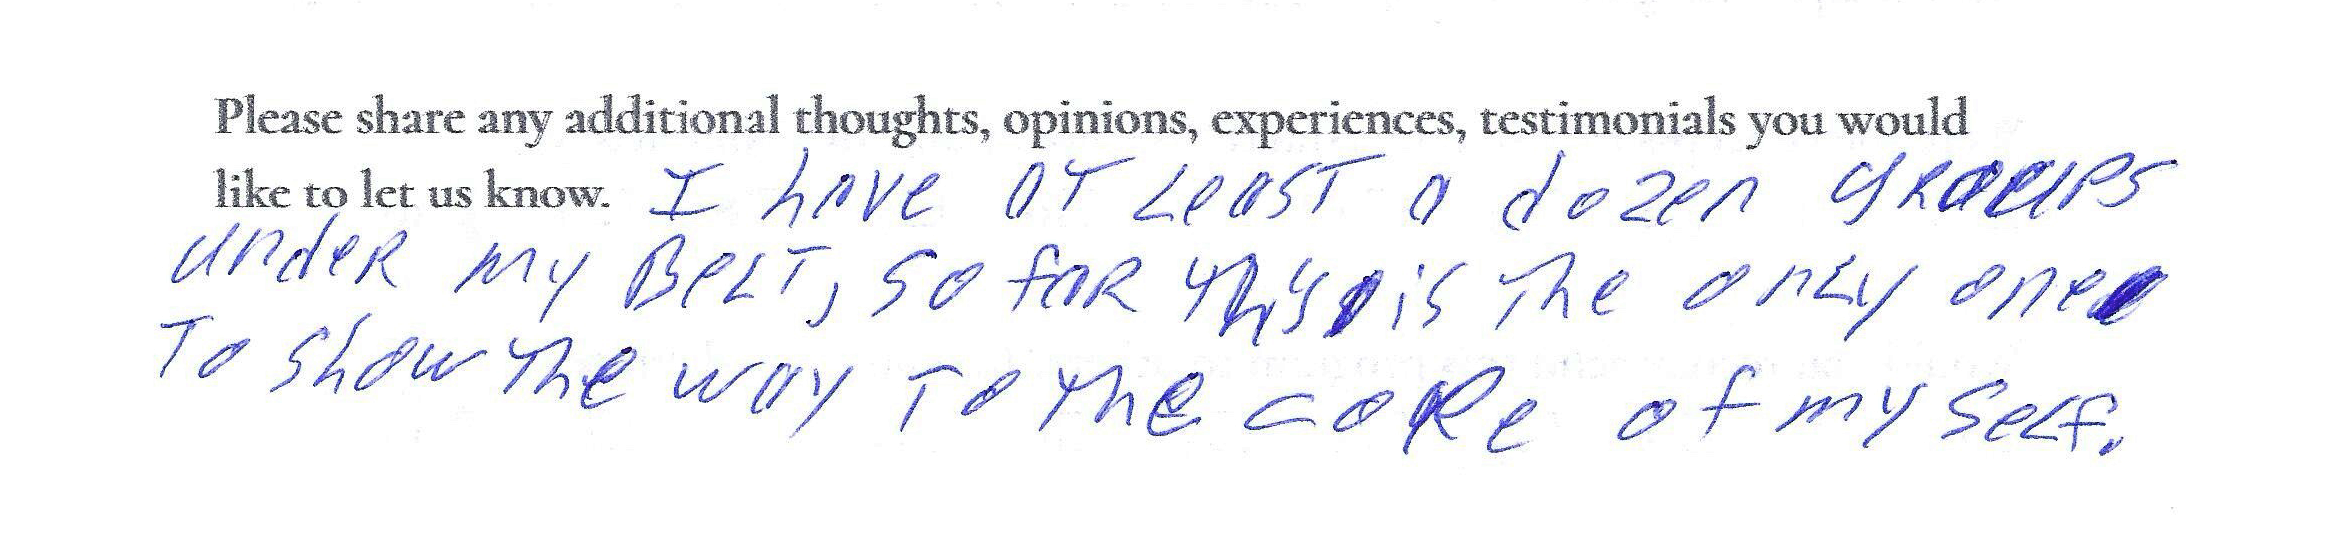 Please share any additional thoughts, opinions, experiences, testimonials you would
like to let us know. I have at Least a dozen groups
under my Belt, so far this is the only one
To show the way To the core of my self.